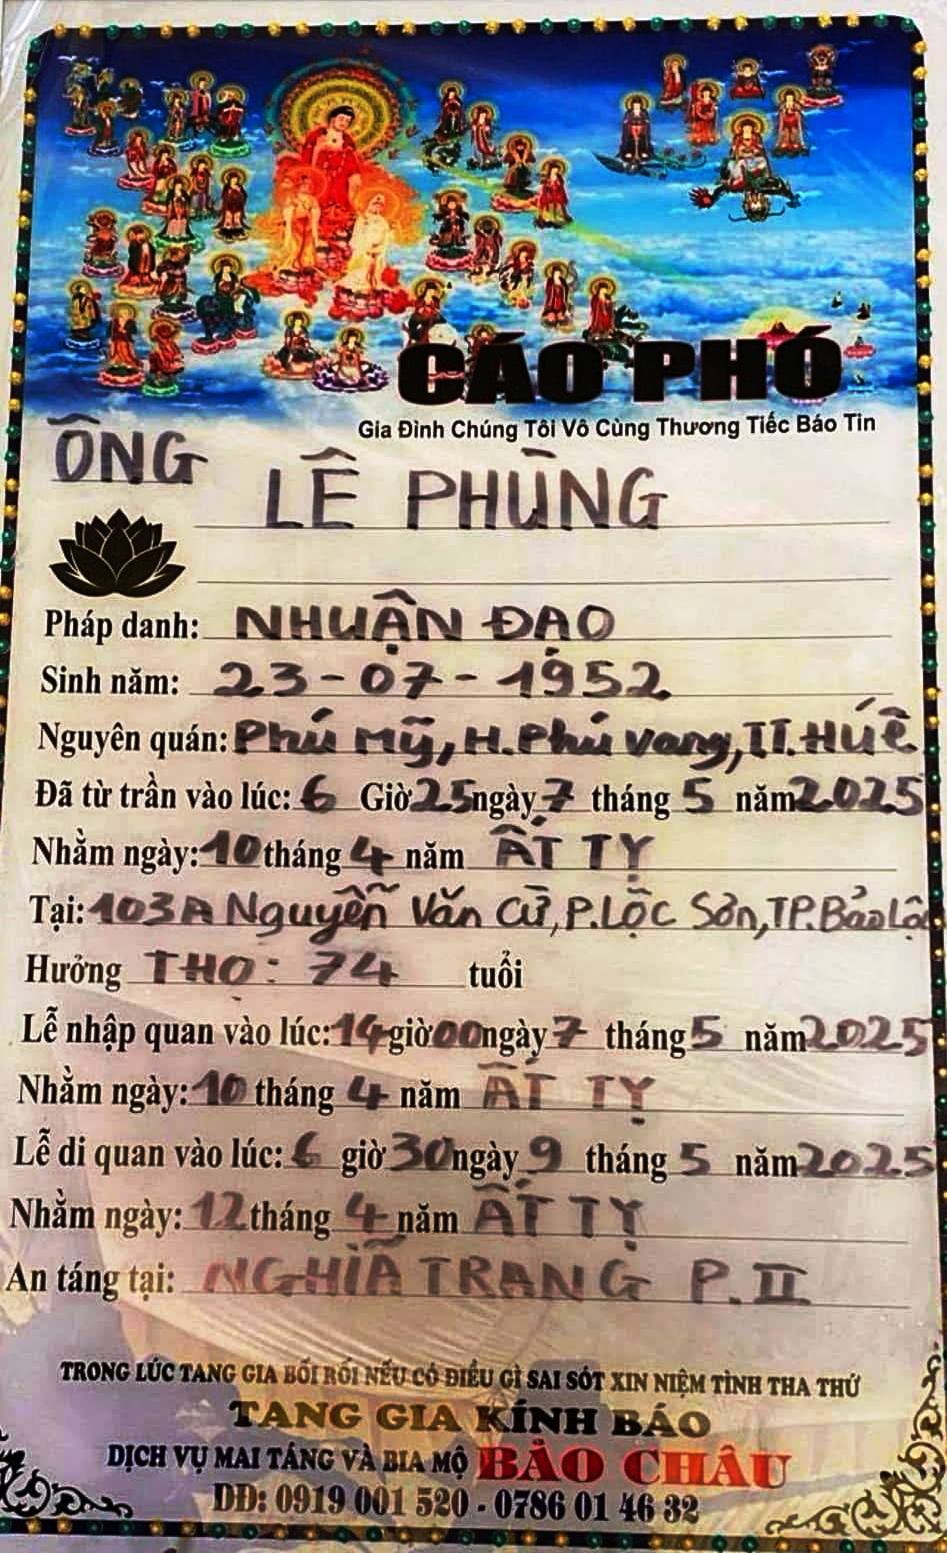 CÁO PHÓ
Gia Đình Chúng Tôi Vô Cùng Thương Tiếc Báo Tin
ÔNG
LÊ PHÙNG
Pháp danh: NHUẬN ĐẠO
Sinh năm: 23-07-1952
Nguyên quán: Phú Mỹ, H. Phú Vang, TT. HUẾ
Đã từ trần vào lúc: 6 Giờ 25 ngày 7 tháng 5 năm 2025
Nhằm ngày: 10 tháng 4 năm ẤT TỴ
Tại: 103A Nguyễn Văn Cừ, P. Lộc Sơn, TP. Bảo Lộc
Hưởng THỌ: 74 tuổi
Lễ nhập quan vào lúc: 14 giờ 00 ngày 7 tháng 5 năm 2025
Nhằm ngày: 10 tháng 4 năm ẤT TỴ
Lễ di quan vào lúc: 6 giờ 30 ngày 9 tháng 5 năm 2025
Nhằm ngày: 12 tháng 4 năm ẤT TỴ
An táng tại: NGHĨA TRANG P. II
TRONG LÚC TANG GIA BỐI RỐI NẾU CÓ ĐIỀU GÌ SAI SÓT XIN NIỆM TÌNH THA THỨ
TANG GIA KÍNH BÁO
DỊCH VỤ MAI TÁNG VÀ BIA MỘ BẢO CHÂU
DĐ: 0919 001 520 - 0786 01 46 32